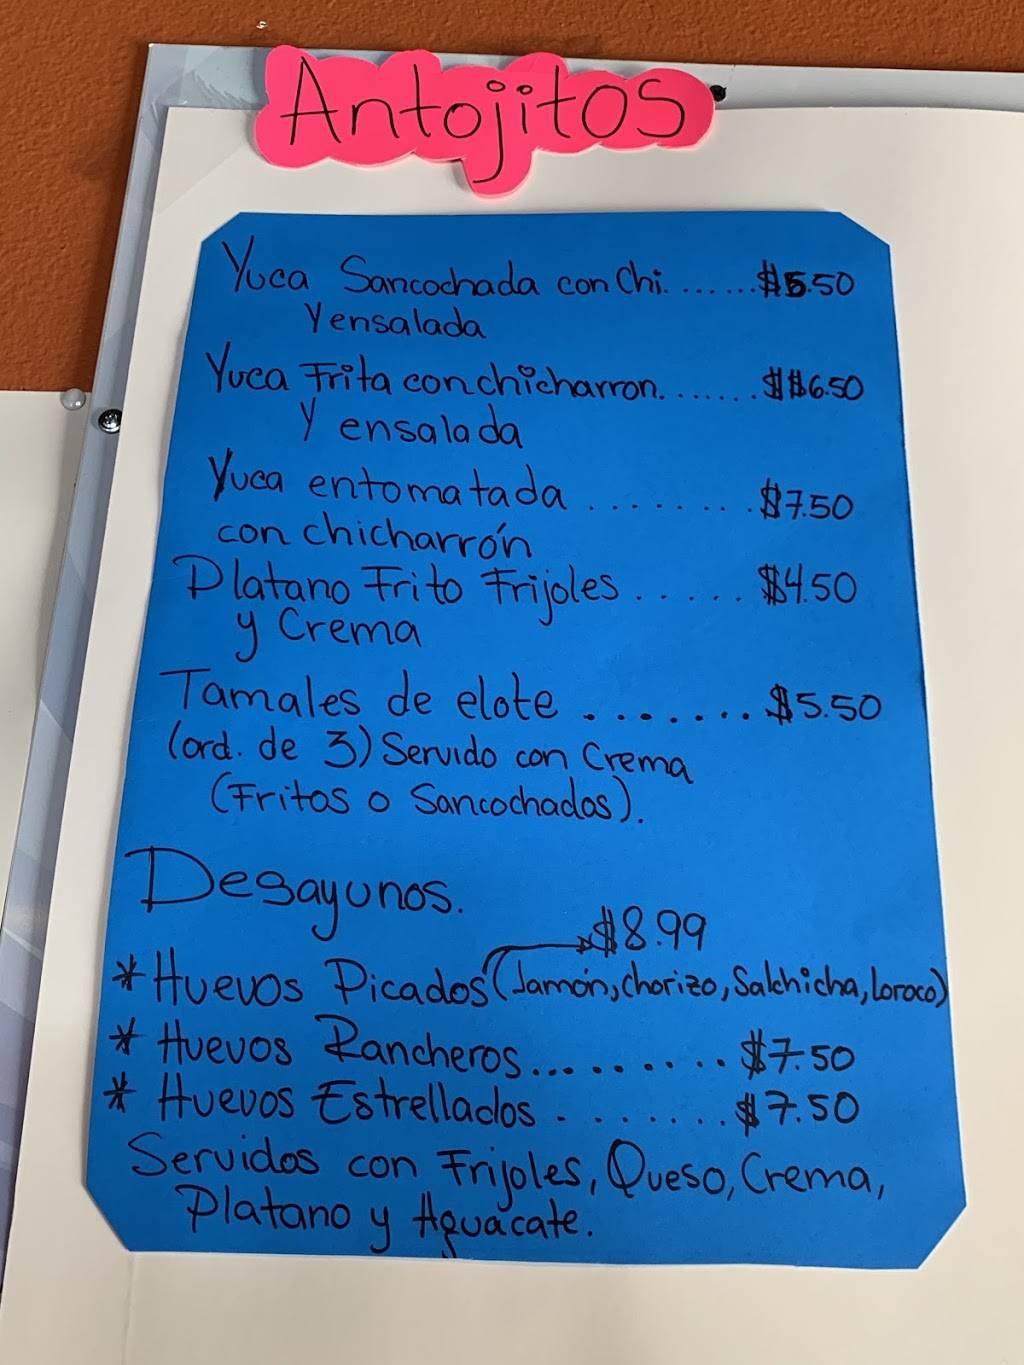 Antojitos
Yuca Sancochada con Chi. ...... $5.50
Y ensalada
Yuca Frita con chicharron. ...... $$6.50
Y ensalada
Yuca entomatada ......... $7.50
con chicharrón
Platano Frito Frijoles ..... $4.50
y Crema
Tamales de elote ....... $5.50
(ord. de 3) Servido con Crema
(Fritos o Sancochados).
Desayunos.
$8.99
* Huevos Picados (Jamón, chorizo, Salchicha, Loroco)
* Huevos Rancheros......... $7.50
* Huevos Estrellados ....... $7.50
Servidos con Frijoles, Queso, Crema,
Platano y Aguacate.